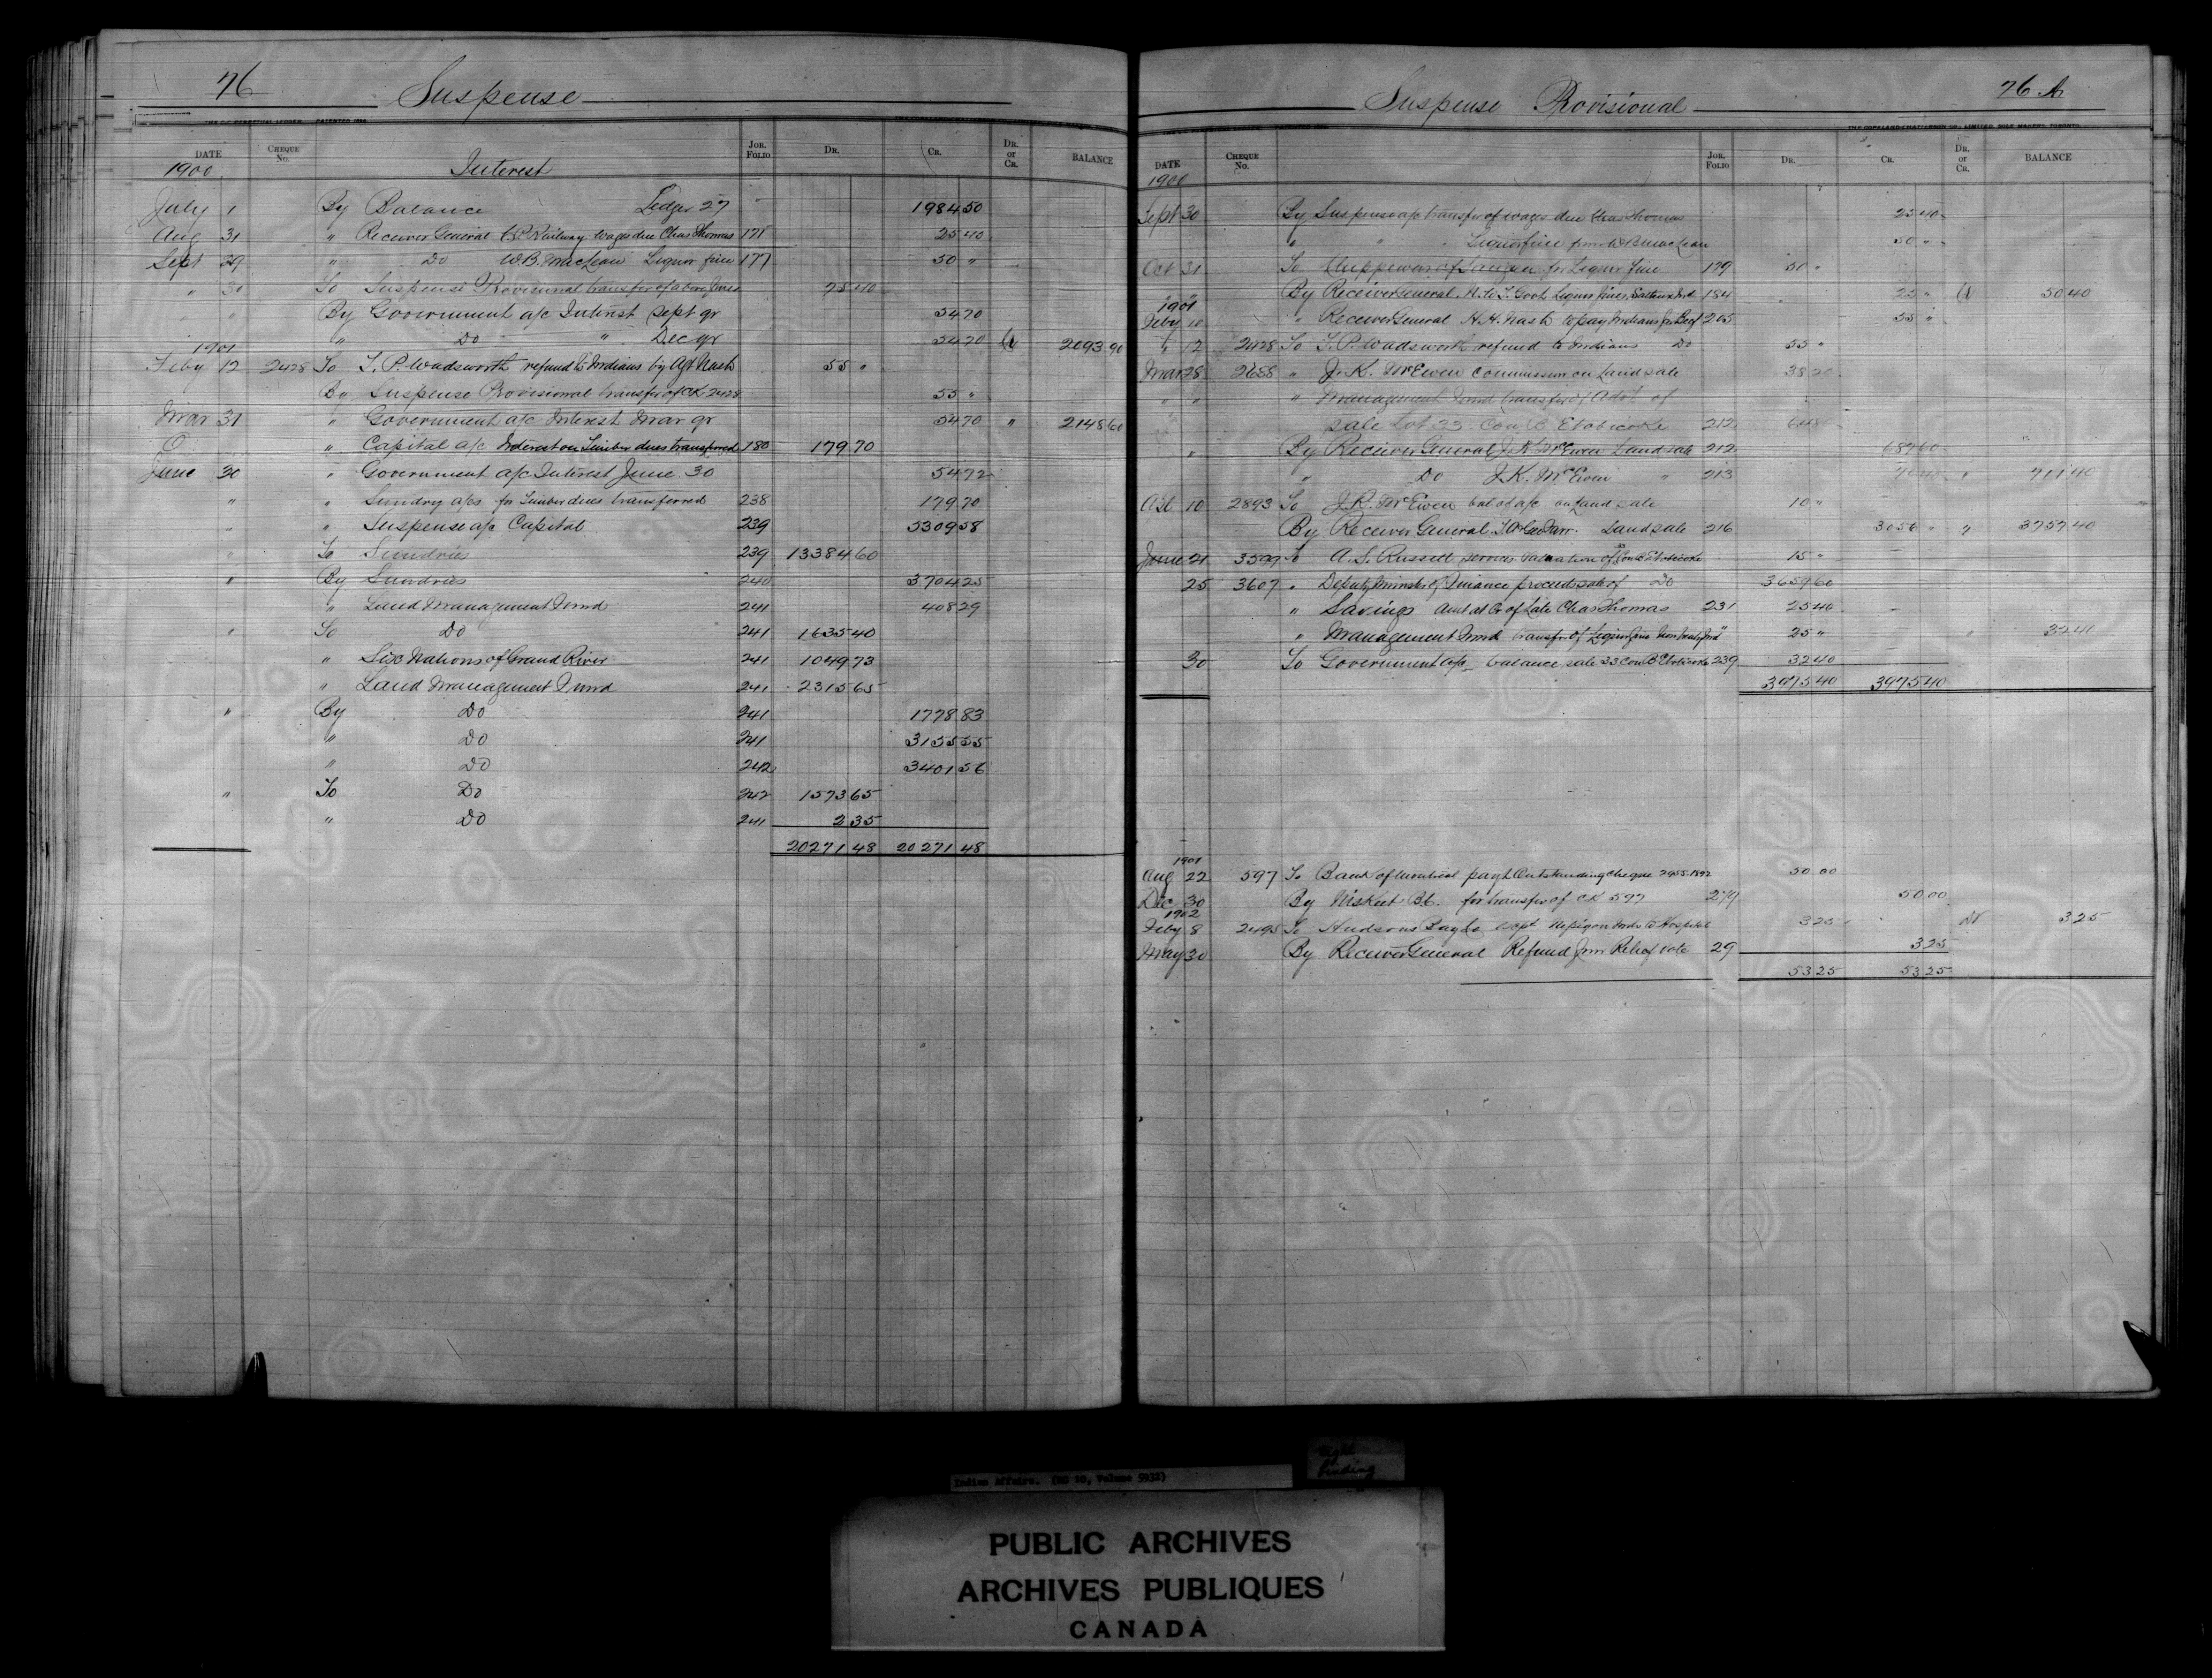 76
Suspense
THE C-C PERPETUAL LEDGER PATENTED 1894
DATE CHEQUE No. JOR. FOLIO DR. CR. DR. or CR. BALANCE
1900 Interest
July 1 By Balance Ledger 27 " 1984 50
Aug 31 " Receiver General C.P. Railway wages due Chas Thomas 171 25 40
Sept 29 " Do W.B. MacLean Liquor fine 177 50 "
" 30 To Suspense Provisional transfer of above 75 40
" " By Government a/c Interest Sept qr 54 70
1901 " Do " Dec qr 54 70 Cr 2093 90
Feby 12 2428 To T.P. Wadsworth refund to Indians by Agt Nash 55 "
By Suspense Provisional transfer of CK 2428 55 "
Mar 31 " Government a/c Interest Mar qr 54 70 " 2148 60
" Capital a/c Interest on Timber dues transferred 180 179 70
June 30 " Government a/c Interest June 30 54 72
" " Sundry a/cs for Timber dues transferred 238 179 70
" " Suspense a/c Capital 239 5309 58
" To Sundries 239 13384 60
" By Sundries 240 3704 25
" Land Management Fund 241 408 29
" To Do 241 1635 40
" Six Nations of Grand River 241 1049 73
" Land Management Fund 241 2315 65
" By Do 241 1778 83
" Do 241 3155 55
" Do 242 3401 56
" To Do 242 1573 65
" Do 241 2 35
20271 48 20271 48
Suspense Provisional
76 A
THE COPELAND-CHATTERSON CO., LIMITED, SOLE MAKERS, TORONTO
DATE CHEQUE No. JOR. FOLIO DR. CR. DR. or CR. BALANCE
1900
Sept 30 By Suspense a/c transfer of wages due Chas Thomas 25 40
" " " Liquor fine from W B MacLean 50 "
Oct 31 To Chippewas of for Liquor fine 179 50 "
" " By Receiver General, N.W.T. Govt Liquor fines 184 25 " Cr 50 40
1901
Feby 10 " Receiver General H.H. Nash to pay Indians for Beef 205 55 "
" 12 2428 To T.P. Wadsworth refund to Indians Do 55 "
Mar 28 2658 " J.K. McEwen commission on Land sale 38 20
" " " Management Fund transfer of
sale Lot 33 Con B Etobicoke 212 64 80
" By Receiver General J.K. McEwen Land sale 212 687 60
" Do J.K. McEwen " 213 " 711 40
Apl 10 2893 To J.K. McEwen bal of a/c on Land sale 10 "
By Receiver General Land sale 216 3056 " " 3757 40
June 21 3599 To A.S. Russell services valuation of 33 Con B Etobicoke 15 "
25 3607 " Deputy Minister of Finance proceeds sale of Do 3659 60
" Savings Amt at Cr of Late Chas Thomas 231 25 40
" Management Fund transfer of Liquor fine 25 " " 32 40
30 To Government a/c balance, sale 33 Con B Etobicoke 239 32 40
3975 40 3975 40
1901
Aug 22 597 To Bank of Montreal payt Outstanding cheque 2955. 1892 50 00
Dec 30 By for transfer of CK 597 279 50 00
1902
Feby 8 2495 To Hudsons Bay Co Nepigon Inds to Hospital 3 25 Dr 3 25
May 30 By Receiver General Refund from Relief vote 29 3 25
53 25 53 25
Indian Affairs. (RG 10, Volume 5932)
Tight
binding
PUBLIC ARCHIVES
ARCHIVES PUBLIQUES
CANADA